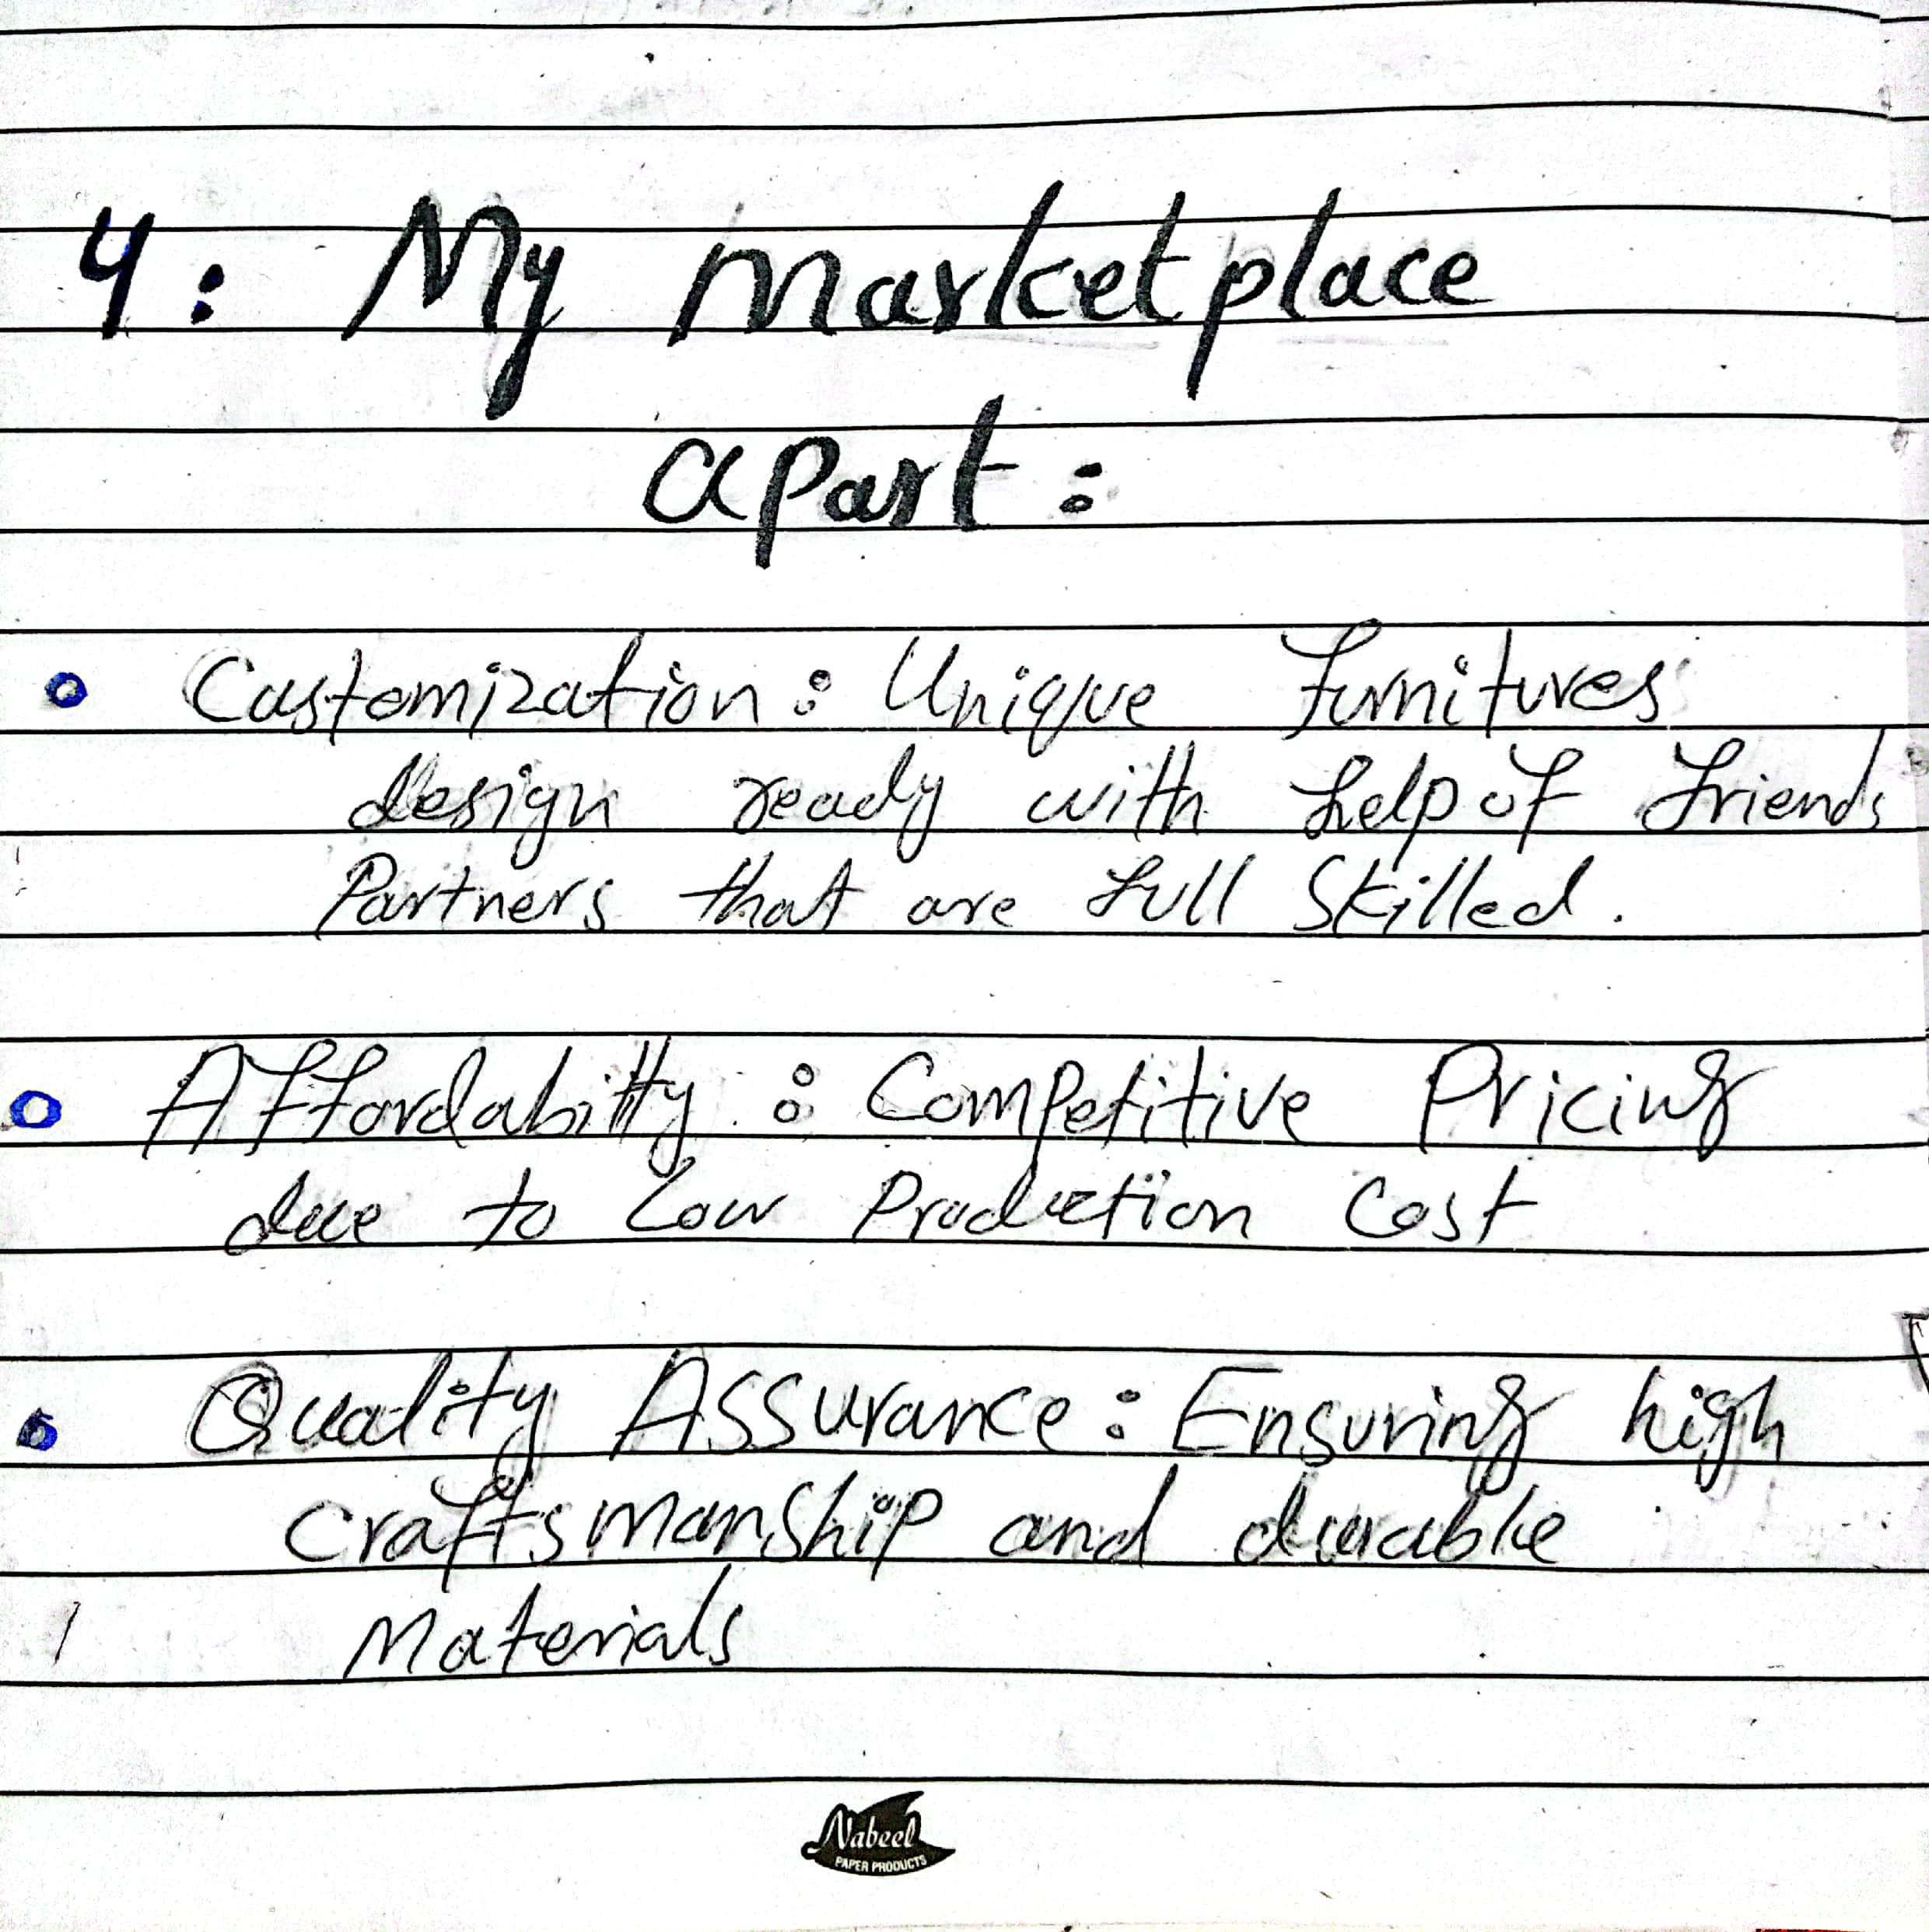 4: My Marketplace
apart:
Customization: Unique furnitures
design ready with help of friends
Partners that are full Skilled.
Affordability: Competitive Pricing
due to Low Production Cost
Quality Assurance: Ensuring high
craftsmanship and durable
Materials
Nabeel
PAPER PRODUCTS